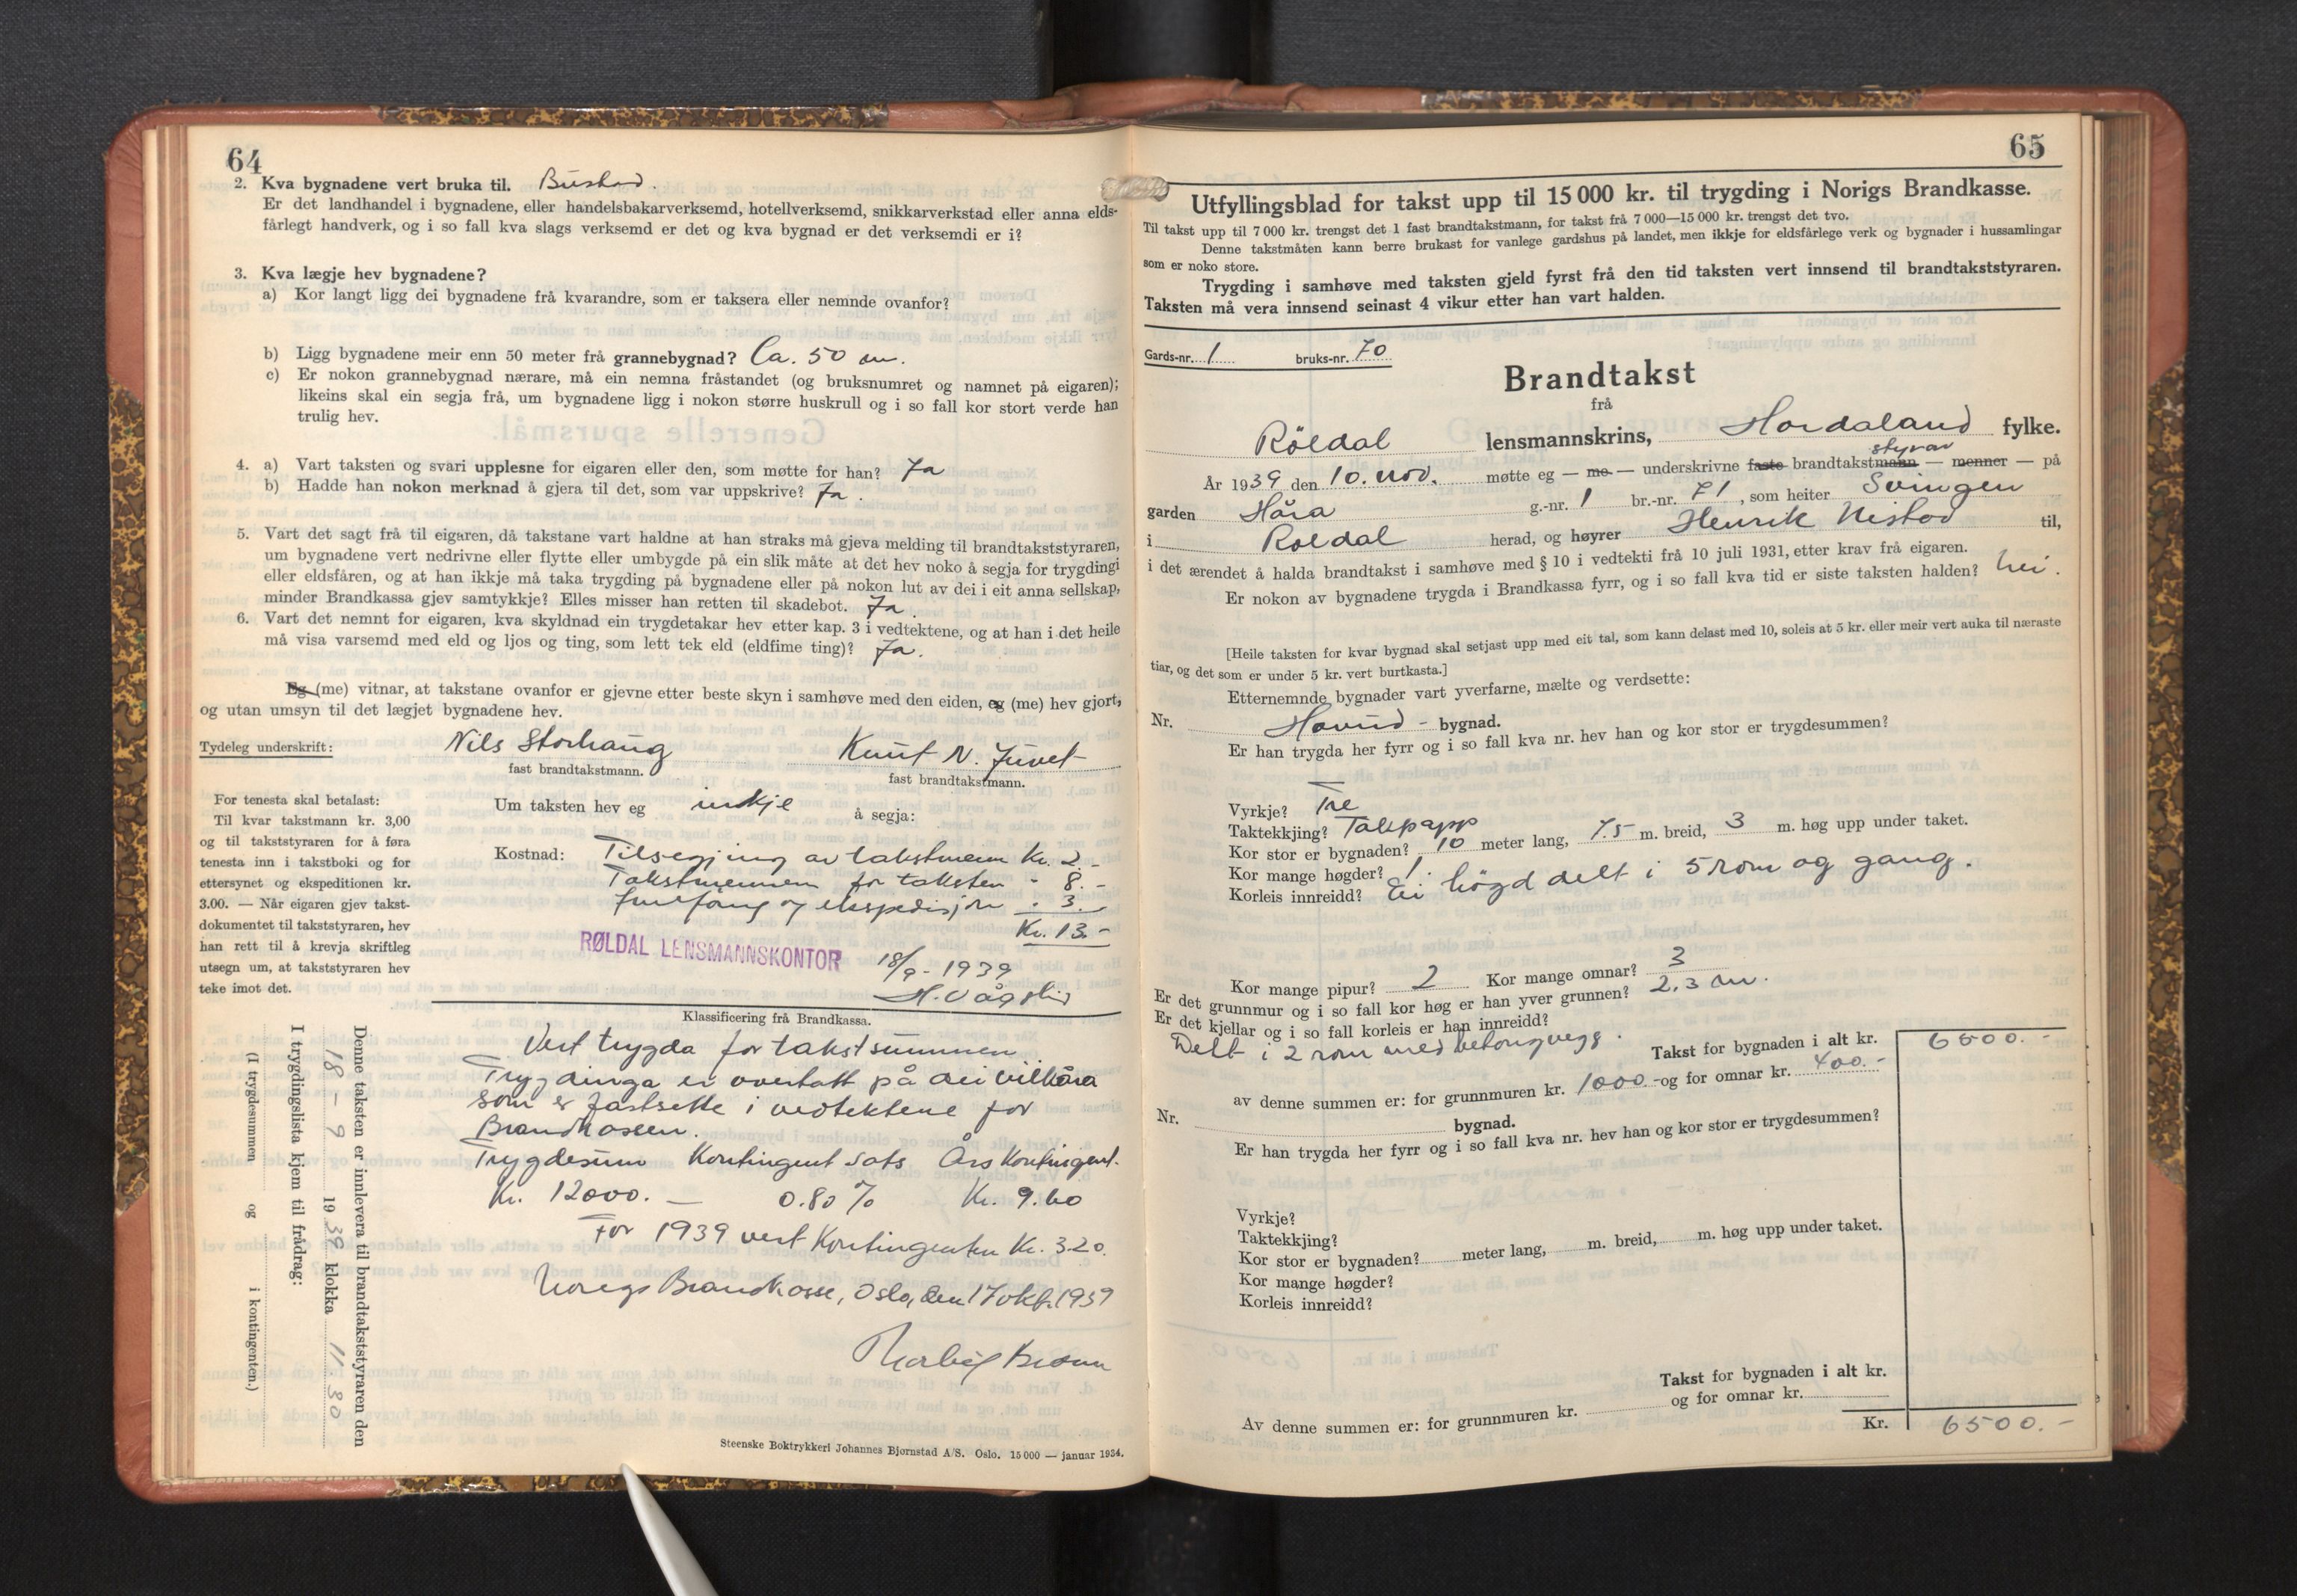 64
2. Kva bygnadene vert bruka til. Bustad.
Er det landhandel i bygnadene, eller handelsbakarverksemd, hotellverksemd, snikkarverkstad eller anna elds-
fårlegt handverk, og i so fall kva slags verksemd er det og kva bygnad er det verksemdi er i?
3. Kva lægje hev bygnadene?
a) Kor langt ligg dei bygnadene frå kvarandre, som er taksera eller nemnde ovanfor?
b) Ligg bygnadene meir enn 50 meter frå grannebygnad? Ca. 50 m.
c) Er nokon grannebygnad nærare, må ein nemna fråstandet (og bruksnumret og namnet på eigaren);
likeins skal ein segja frå, um bygnadene ligg i nokon større huskrull og i so fall kor stort verde han
trulig hev.
4. a) Vart taksten og svari upplesne for eigaren eller den, som møtte for han? Ja
b) Hadde han nokon merknad å gjera til det, som var uppskrive? Ja.
5. Vart det sagt frå til eigaren, då takstane vart haldne at han straks må gjeva melding til brandtakststyraren,
um bygnadene vert nedrivne eller flytte eller umbygde på ein slik måte at det hev noko å segja for trygdingi
eller eldsfåren, og at han ikkje må taka trygding på bygnadene eller på nokon lut av dei i eit anna sellskap,
minder Brandkassa gjev samtykkje? Elles misser han retten til skadebot. Ja.
6. Vart det nemnt for eigaren, kva skyldnad ein trygdetakar hev etter kap. 3 i vedtektene, og at han i det heile
må visa varsemd med eld og ljos og ting, som lett tek eld (eldfime ting)? Ja.
Eg (me) vitnar, at takstane ovanfor er gjevne etter beste skyn i samhøve med den eiden, eg (me) hev gjort,
og utan umsyn til det lægjet bygnadene hev.
Tydeleg underskrift: Nils Storhaug Knut N. Juvet
fast brandtakstmann. fast brandtakstmann.
For tenesta skal betalast:
Til kvar takstmann kr. 3,00
og til takststyraren for å føra
tenesta inn i takstboki og for
ettersynet og ekspeditionen kr.
3.00. — Når eigaren gjev takst-
dokumentet til takststyraren, hev
han rett til å krevja skriftleg
utsegn um, at takststyraren hev
teke imot det.
Um taksten hev eg inkje å segja:
Kostnad: Tilsegjing av takstmenn Kr. 2.-
Takstmennene for taksten " 8.-
Innføring og ekspedisjon " 3.-
Kr. 13.-
RØLDAL LENSMANNSKONTOR 18/9-1939
H. Vågslid
Klassificering frå Brandkassa.
Vert trygda for takstsummen.
Trygdinga er overtatt på dei vilkåra
som er fastsette i vedtektene for
Brandkassen.
Trygdesum Kontingent sats Års kontingent.
Kr. 12000.— 0.80 % Kr. 9.60
For 1939 vert kontingenten Kr. 3.20.
Noregs Brandkasse, Oslo, den 17 okt. 1939
Denne taksten er innlevera til brandtakststyraren den
18 - 9 1939 klokka 11.30
I trygdingslista kjem til frådrag:
(I trygdesummen og i kontingenten.)
Steenske Boktrykkeri Johannes Bjørnstad A/S. Oslo. 15 000 — januar 1934.
65
Utfyllingsblad for takst upp til 15 000 kr. til trygding i Norigs Brandkasse.
Til takst upp til 7 000 kr. trengst det 1 fast brandtakstmann, for takst frå 7 000—15 000 kr. trengst det tvo.
Denne takstmåten kann berre brukast for vanlege gardshus på landet, men ikkje for eldsfårlege verk og bygnader i hussamlingar
som er noko store.
Trygding i samhøve med taksten gjeld fyrst frå den tid taksten vert innsend til brandtakststyraren.
Taksten må vera innsend seinast 4 vikur etter han vart halden.
Gards-nr. 1 bruks-nr. 70
Brandtakst
frå
Röldal lensmannskrins, Hordaland fylke.
styrar
År 1939 den 10. nov. møtte eg — me — underskrivne faste brandtakstmann — menner — på
garden Håra g.-nr. 1 br.-nr. 71, som heiter Svingen
i Röldal herad, og høyrer Henrik Nistad til,
i det ærendet å halda brandtakst i samhøve med § 10 i vedtekti frå 10 juli 1931, etter krav frå eigaren.
Er nokon av bygnadene trygda i Brandkassa fyrr, og i so fall kva tid er siste taksten halden? Nei.
[Heile taksten for kvar bygnad skal setjast upp med eit tal, som kann delast med 10, soleis at 5 kr. eller meir vert auka til næraste
tiar, og det som er under 5 kr. vert burtkasta.]
Etternemnde bygnader vart yverfarne, mælte og verdsette:
Nr. Hovud - bygnad.
Er han trygda her fyrr og i so fall kva nr. hev han og kor stor er trygdesummen?
Vyrkje? Tre
Taktekkjing? Takpapp
Kor stor er bygnaden? 10 meter lang, 7.5 m. breid, 3 m. høg upp under taket.
Kor mange høgder? 1.
Korleis innreidd? Ei högd delt i 5 rom og gang.
Kor mange pipur? 2 Kor mange omnar? 3
Er det grunnmur og i so fall kor høg er han yver grunnen? 2.3 m.
Er det kjellar og i so fall korleis er han innreidd?
Delt i 2 rom med betongvegg. Takst for bygnaden i alt kr. 6500.-
av denne summen er: for grunnmuren kr. 1000.- og for omnar kr. 400.-
Nr. bygnad.
Er han trygda her fyrr og i so fall kva nr. hev han og kor stor er trygdesummen?
Vyrkje?
Taktekkjing?
Kor stor er bygnaden? meter lang, m. breid, m. høg upp under taket.
Kor mange høgder?
Korleis innreidd?
Takst for bygnaden i alt kr.
Av denne summen er: for grunnmuren kr. og for omnar kr.
Kr. 6500.-